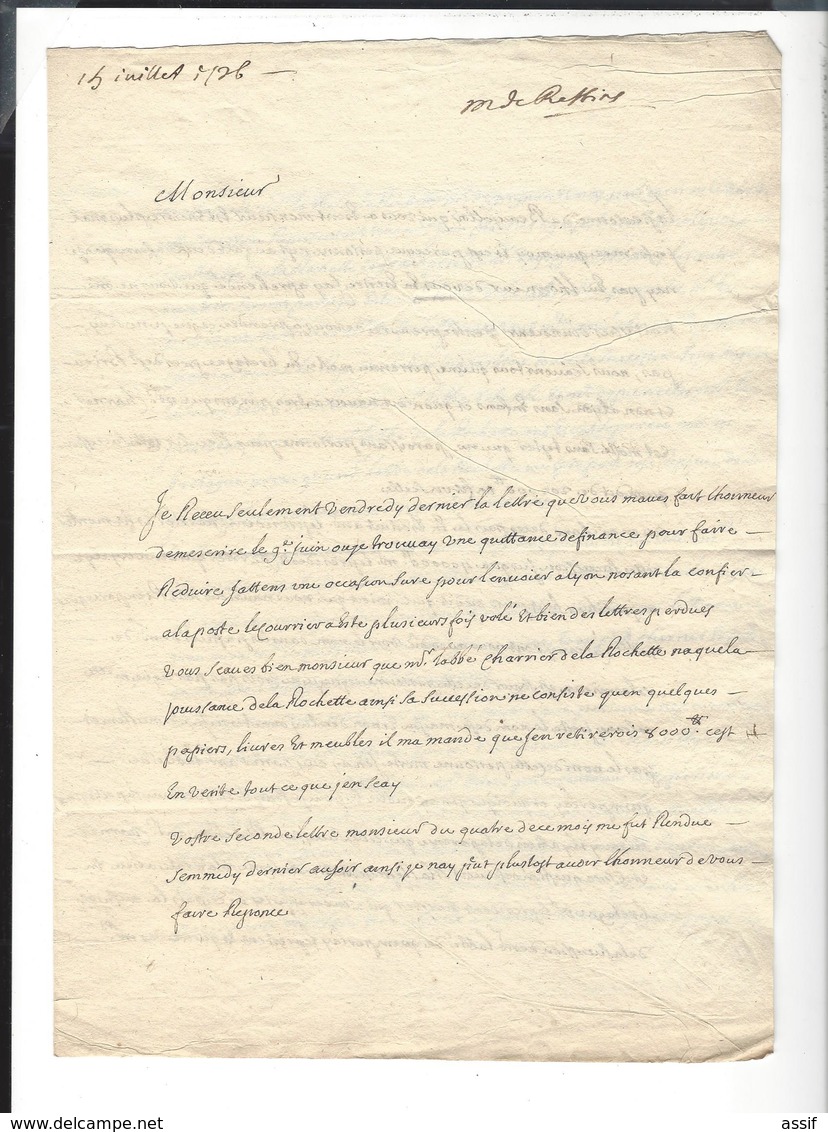 15 juillet 1726 —
m de Ressins
Monsieur
Je Receu seulement Vendredy dernier la lettre que Vous maves fait lhonneur
demescrire le 9.e juin ou je trouuay Vne quittance definance pour faire —
Reduire, Jattens vne occasion sure pour l'enuoier a lyon nosant la confier —
a la poste le Courrier a Este plusieurs fois volé Et bien des lettres perdues
Vous scaues bien monsieur que mr. labbé Charrier de la Rochette na que la —
jouissance de la Rochette ainsi sa succession ne consiste quen quelques —
papiers, liures Et meubles il ma mandé que j'en retirerois 8000tt. cest
En verite tout ce que jen scay
Vostre seconde lettre monsieur du quatre de ce mois me fut Rendue —
semmedy dernier au soir ainsi je nay put plustost auoir lhonneur de vous —
faire Reponce
assif